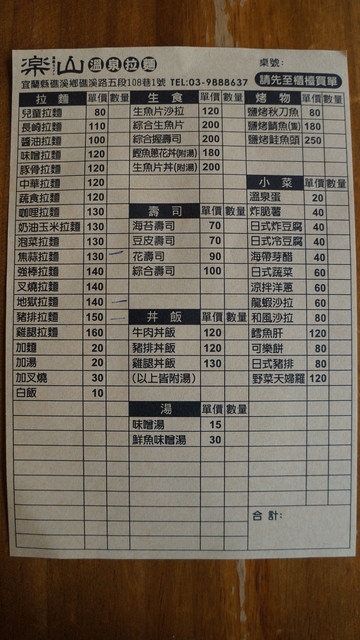 楽山 溫泉拉麵
桌號:
宜蘭縣礁溪鄉礁溪路五段108巷1號 TEL:03-9888637
請先至櫃檯買單
拉麵 單價 數量
兒童拉麵 80
長崎拉麵 110
醬油拉麵 100
味噌拉麵 120
豚骨拉麵 120
中華拉麵 120
蔬食拉麵 120
咖哩拉麵 130
奶油玉米拉麵 130
泡菜拉麵 130
焦蒜拉麵 130
強棒拉麵 140
叉燒拉麵 140
地獄拉麵 140
豬排拉麵 150
雞腿拉麵 160
加麵 20
加湯 20
加叉燒 30
白飯 10
生食 單價 數量
生魚片沙拉 120
綜合生魚片 200
綜合握壽司 200
鰹魚蔥花丼(附湯) 180
生魚片丼(附湯) 200
壽司 單價 數量
海苔壽司 70
豆皮壽司 70
花壽司 90
綜合壽司 100
丼飯 單價 數量
牛肉丼飯 120
豬排丼飯 120
雞腿丼飯 130
(以上皆附湯)
湯 單價 數量
味噌湯 15
鮮魚味噌湯 30
烤物 單價 數量
鹽烤秋刀魚 80
鹽烤鯖魚(隻) 180
鹽烤鮭魚頭 250
小菜 單價 數量
溫泉蛋 20
炸脆薯 40
日式炸豆腐 40
日式冷豆腐 40
海帶芽醋 40
日式蔬菜 60
涼拌洋蔥 60
龍蝦沙拉 60
和風沙拉 80
鱈魚肝 120
可樂餅 80
日式豬排 80
野菜天婦羅 120
合計: